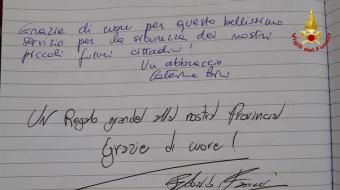 Grazie di cuore per questo bellissimo
servizio per la sicurezza dei nostri
piccoli futuri cittadini!
Un abbraccio
Caterina
UN Regalo grande alla nostra Provincia
Grazie di cuore!
Vigili del Fuoco